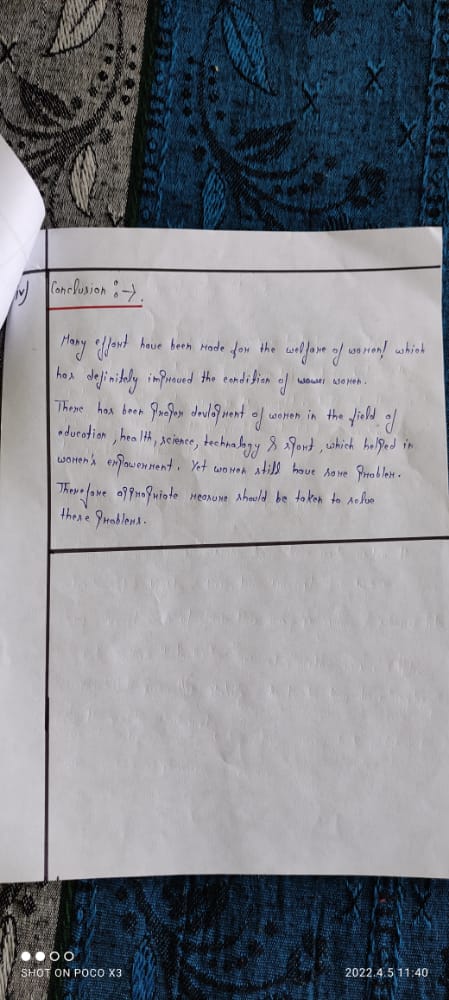 iv) Conclusion :→.
Many effort have been made for the welfare of women! which
has definitely improved the condition of women.
There has been proper devlopment of women in the field of
education, health, science, technology & sport, which helped in
women's empowerment. Yet women still have some problem.
Therefore appropriate measure should be taken to solve
these problems.
SHOT ON POCO X3
2022.4.5 11:40